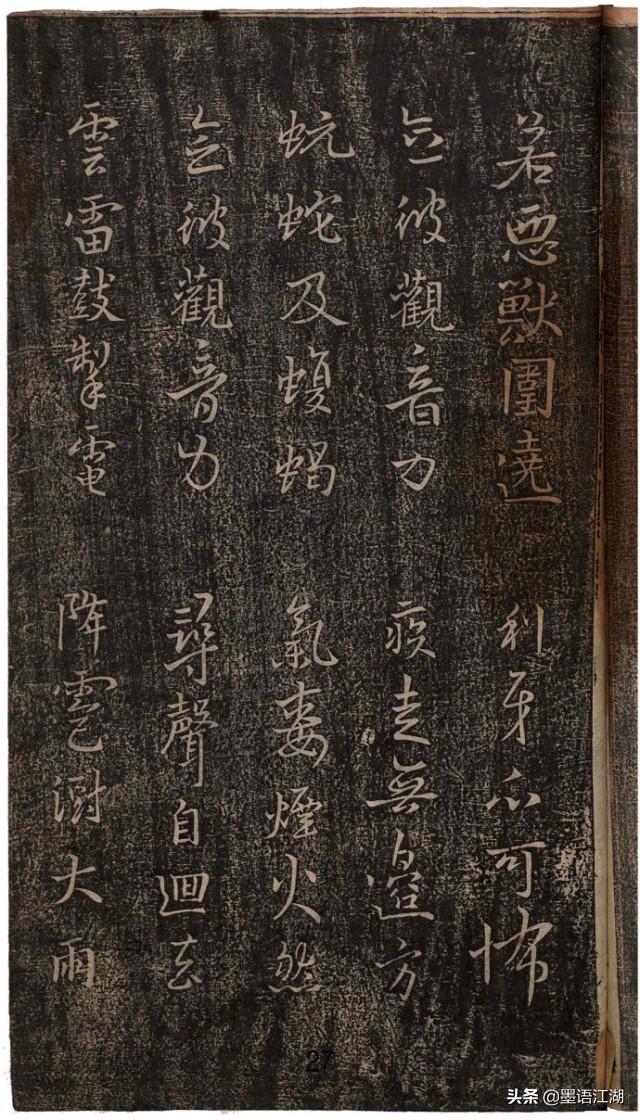 若惡獸圍遶 利牙爪可怖
念彼觀音力 疾走無邊方
蚖蛇及蝮蝎 氣毒煙火然
念彼觀音力 尋聲自迴去
雲雷鼓掣電 降雹澍大雨
27
头条 @墨语江湖